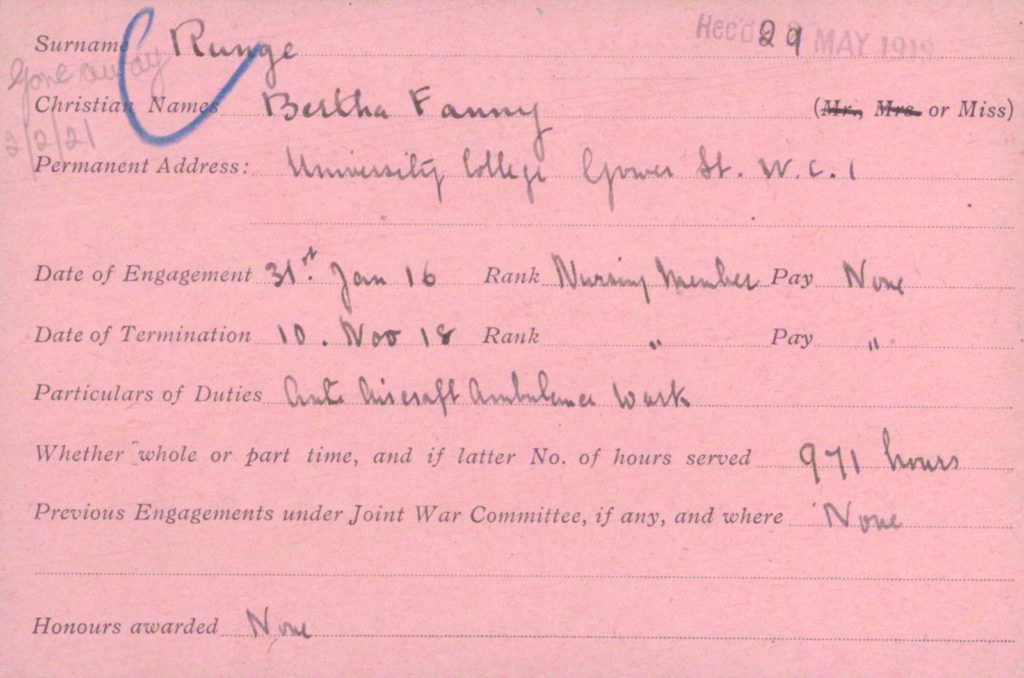 Rec'd 29 MAY 1919
Surname Runge
Gone away
Christian Names Bertha Fanny (Mr., Mrs. or Miss)
2/2/21
Permanent Address: University College Gower St. W.C.1
Date of Engagement 31st. Jan 16 Rank Nursing Member Pay None
Date of Termination 10. Nov 18 Rank " Pay "
Particulars of Duties Anti Aircraft Ambulance Work
Whether whole or part time, and if latter No. of hours served 971 hours
Previous Engagements under Joint War Committee, if any, and where None
Honours awarded None